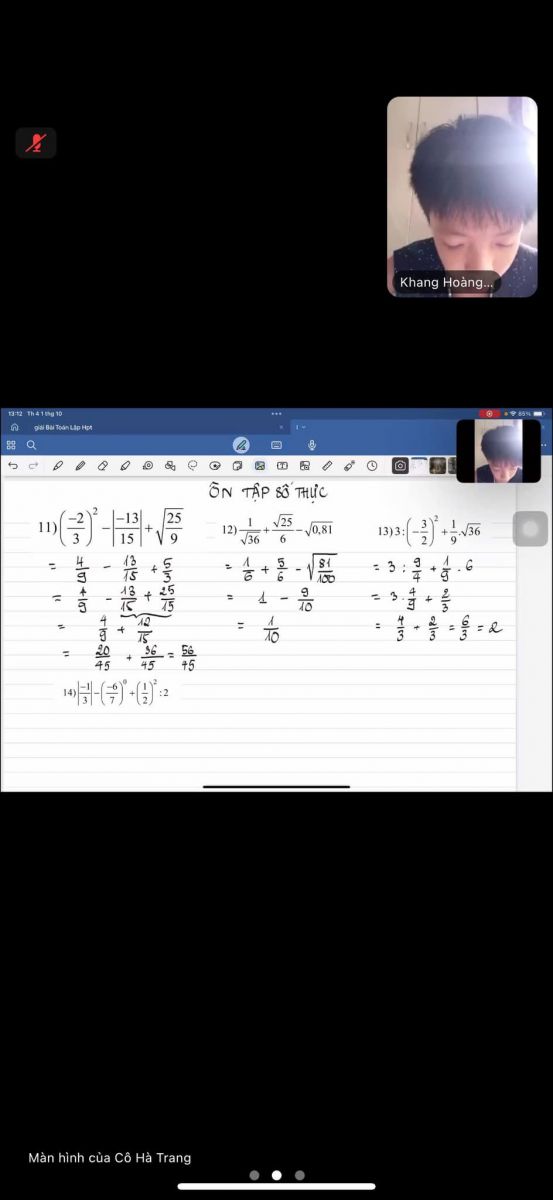 Khang Hoàng...
13:12 Th 4 1 thg 10
85%
giải Bài Toán Lập Hpt
ÔN TẬP SỐ THỰC
11) (-2/3)² - |-13/15| + √(25/9)
= 4/9 - 13/15 + 5/3
= 4/9 - 13/15 + 25/15
= 4/9 + 12/15
= 20/45 + 36/45 = 56/45
12) 1/√36 + √25/6 - √0,81
= 1/6 + 5/6 - √(81/100)
= 1 - 9/10
= 1/10
13) 3 : (-3/2)² + 1/9 . √36
= 3 : 9/4 + 1/9 . 6
= 3 . 4/9 + 2/3
= 4/3 + 2/3 = 6/3 = 2
14) |-1/3| - (-6/7)⁰ + (1/2)² : 2
Màn hình của Cô Hà Trang